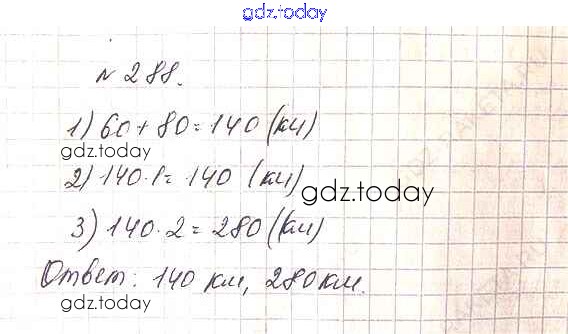 gdz.today
№ 288.
1) 60 + 80 = 140 (км)
gdz.today
2) 140·1 = 140 (км)
gdz.today
3) 140·2 = 280 (км)
Ответ: 140 км, 280 км.
gdz.today